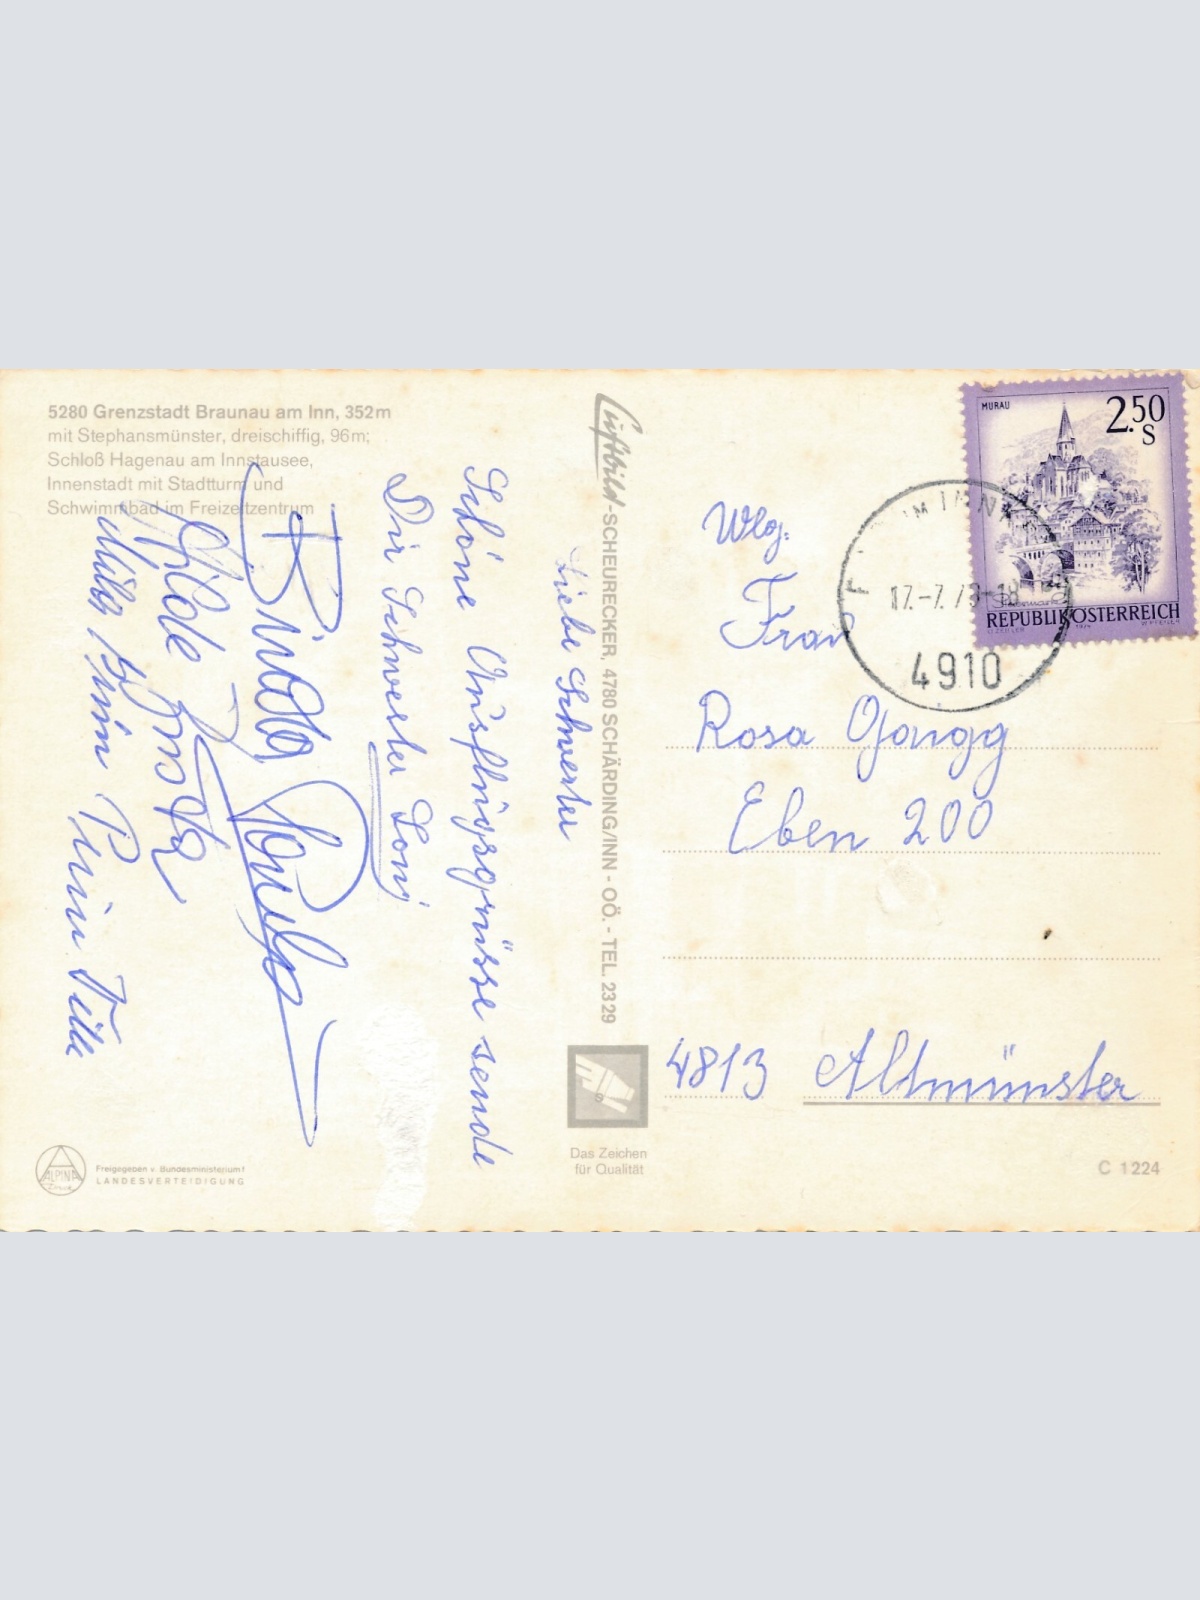 5280 Grenzstadt Braunau am Inn, 352m
mit Stephansmünster, dreischiffig, 96m;
Schloß Hagenau am Innstausee,
Innenstadt mit Stadtturm und
Schwimmbad im Freizeitzentrum
Liebe Schwester
Schöne Ausflugsgrüsse sende
Dir Schwester Loni
Luftbild-SCHEURECKER, 4780 SCHÄRDING/INN - OÖ. - TEL. 2329
MURAU
2.50
S
REPUBLIK ÖSTERREICH
IM INNKR
17.-7.
-18
4910
Wlg.
Frau
Rosa Gaigg
Eben 200
4813 Altmünster
Das Zeichen
für Qualität
ALPINA
Freigegeben v. Bundesministerium f
LANDESVERTEIDIGUNG
C 1224